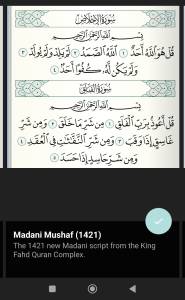 سُورَةُ الإِخْلَاصِ
بِسْمِ اللَّهِ الرَّحْمَٰنِ الرَّحِيمِ
قُلْ هُوَ اللَّهُ أَحَدٌ ١ اللَّهُ الصَّمَدُ ٢ لَمْ يَلِدْ وَلَمْ يُولَدْ ٣
وَلَمْ يَكُن لَّهُ كُفُوًا أَحَدٌ ٤
سُورَةُ الفَلَقِ
بِسْمِ اللَّهِ الرَّحْمَٰنِ الرَّحِيمِ
قُلْ أَعُوذُ بِرَبِّ الْفَلَقِ ١ مِن شَرِّ مَا خَلَقَ ٢ وَمِن شَرِّ
غَاسِقٍ إِذَا وَقَبَ ٣ وَمِن شَرِّ النَّفَّاثَاتِ فِي الْعُقَدِ ٤
وَمِن شَرِّ حَاسِدٍ إِذَا حَسَدَ ٥
Madani Mushaf (1421)
The 1421 new Madani script from the King
Fahd Quran Complex.